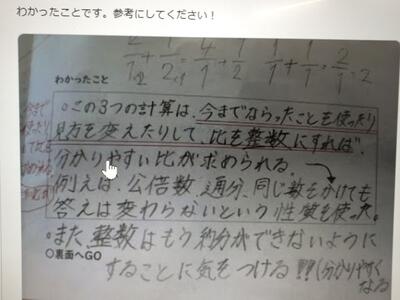 わかったことです。参考にしてください！
2/1×2 + 1/2×1 = 4/1 + 1/2 1/1 + 1/1 = 2/1 = 2
わかったこと
○この3つの計算は、今までならったことを使ったり
見方を変えたりして、比を整数にすれば、
分かりやすい比が求められる。
例えば、公倍数、通分、同じ数をかけても
答えは変わらないという性質を使った。
○また、整数はもう約分ができないように
○裏面へGO
することに気をつける!!(分かりやすく
なる
今まで